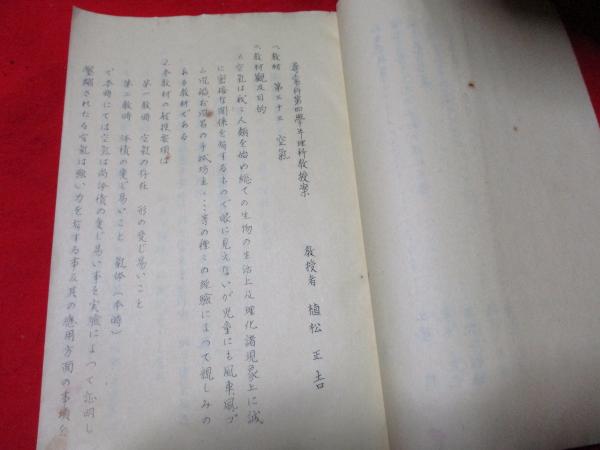 尋常科第四學年理科教授案
教授者 植松正吉
一、教材 第三十三 空氣
二、教材觀及目的
空氣は我々人類を始め總ての生物の生活上及理化諸現象上に誠
に密接な關係を有するもので眼に見えないが兒童にも風車風
手拭坊主・・・等の種々の經驗によつて親しみの
ある教材である
2. 本教材の教授要項は
第一教時 空氣の存在 形の變じ易いこと
第二教時 体積の變じ易いこと 氣体(本時)
で本時にては空氣は尚体積の變じ易い事を實驗によつて証明し
壓縮されたる空氣は強い力を有する事及其の應用方面の事項を